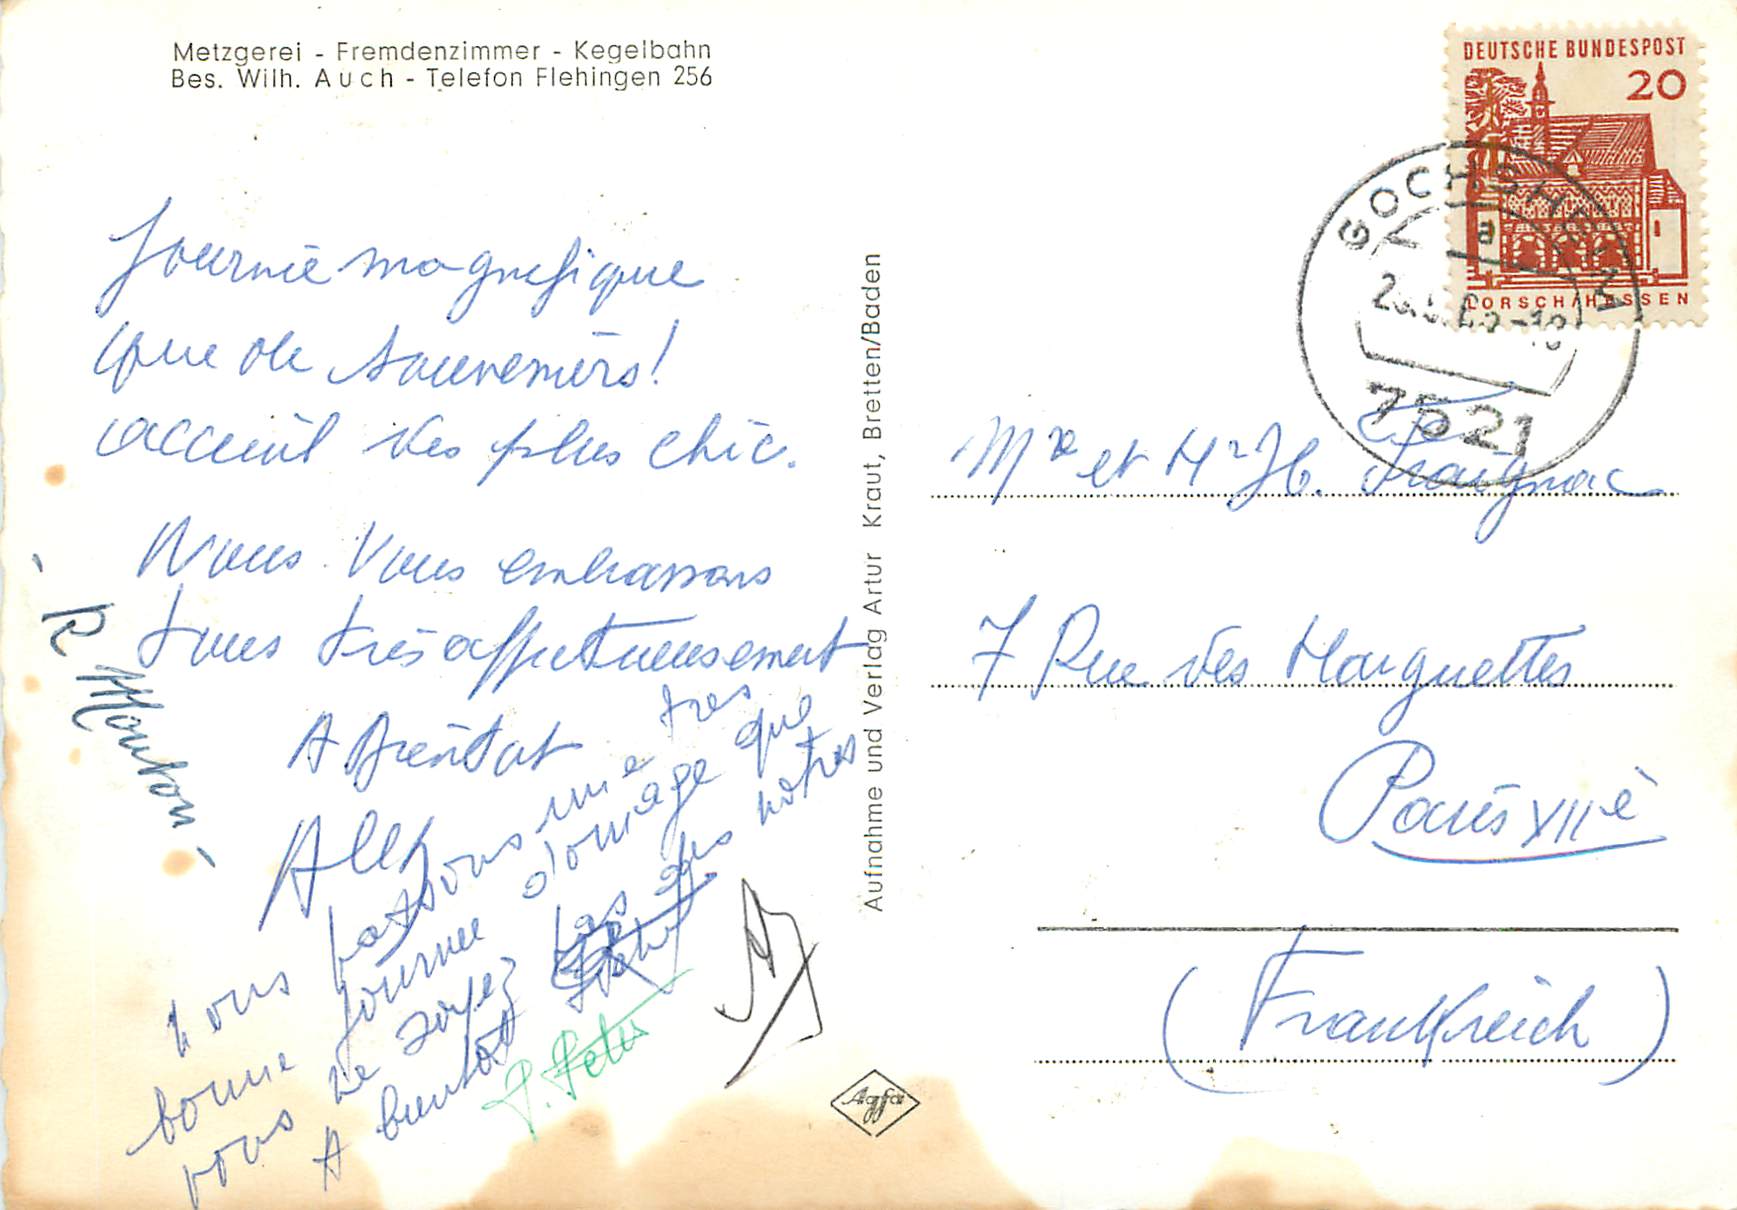 Metzgerei - Fremdenzimmer - Kegelbahn
Bes. Wilh. Auch - Telefon Flehingen 256
DEUTSCHE BUNDESPOST
20
LORSCH/HESSEN
GOCHSHEIM
a
-18
7521
Journée magnifique
Que de Souvenirs!
accueil des plus chic.
Nous Vous embrassons
tous très affectueusement
A Bientot
Alex
R Mouton
nous passons une tres
bonne journee domage que
vous ne soyez pas des notres
A bientôt
P. Peter
Aufnahme und Verlag Artur Kraut, Bretten/Baden
Agfa
Me et Mr H. Fraignac
7 Rue des Marguettes
Paris XIIè
(Frankreich)